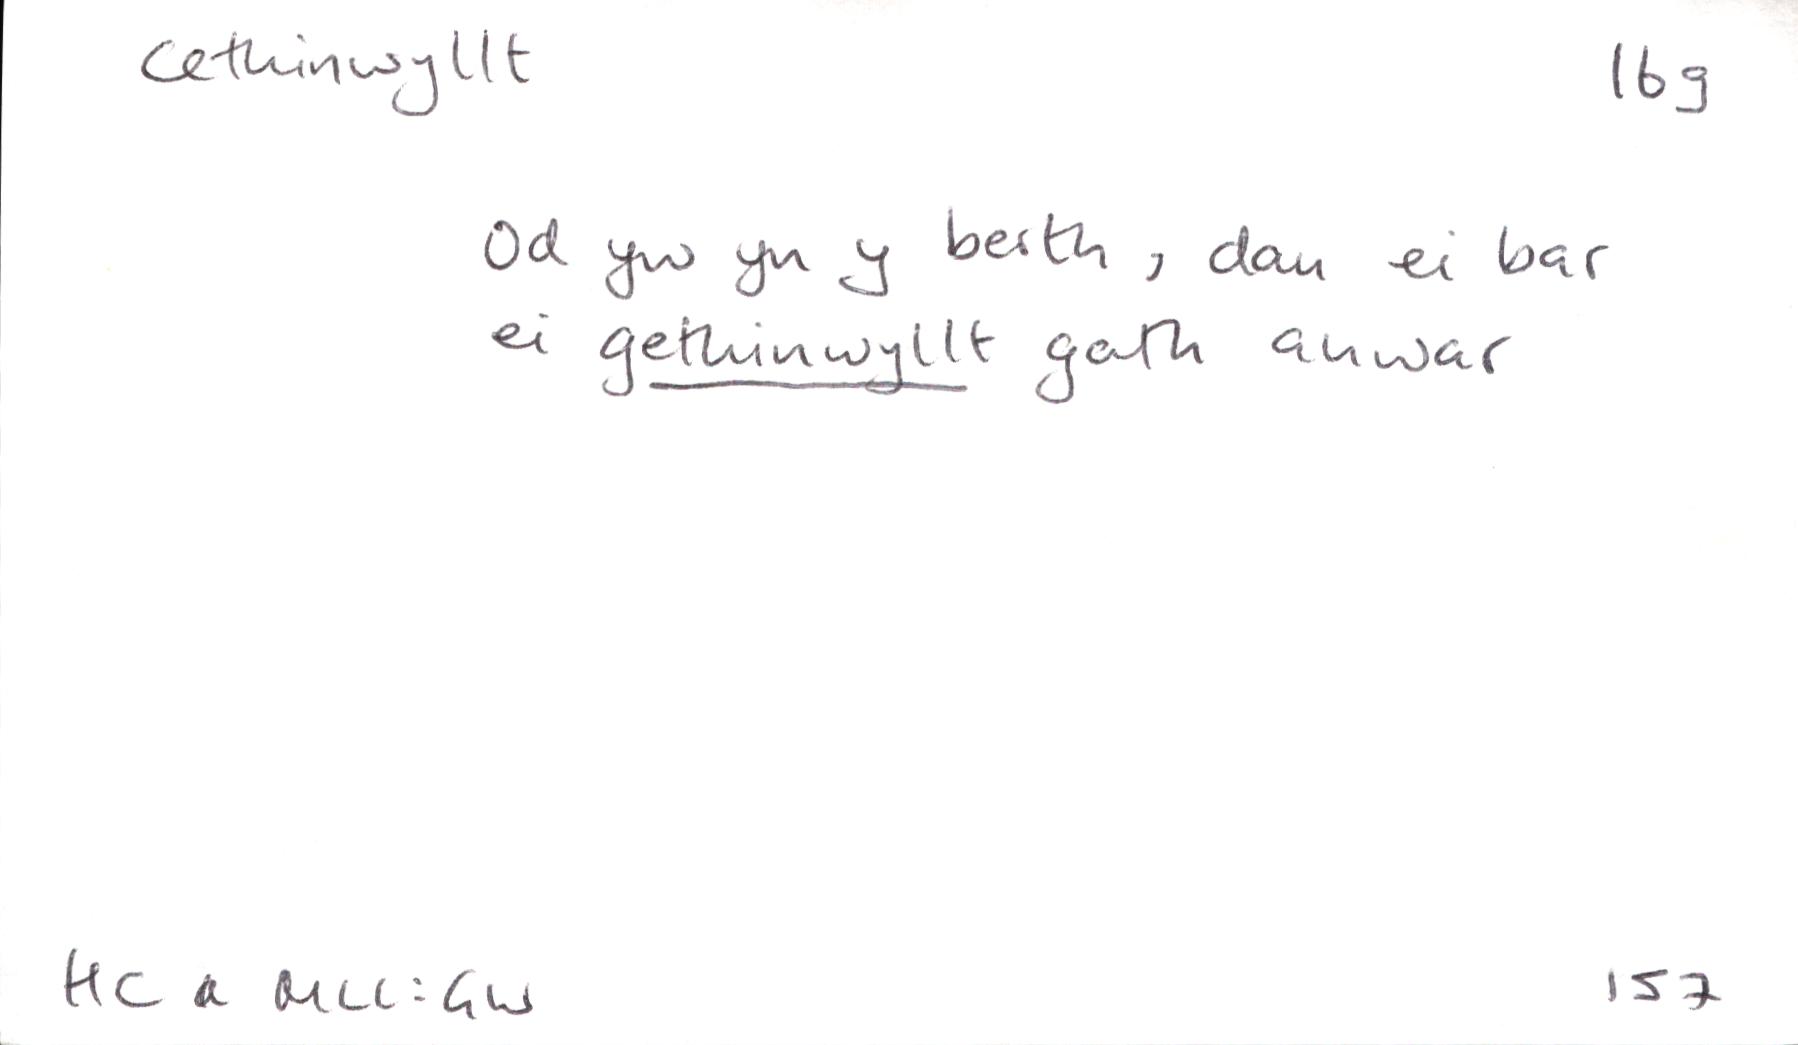 cethinwyllt 16g
Od yw yn y berth, dan ei bar
ei gethinwyllt gath anwar
HC a MLl: GW 157